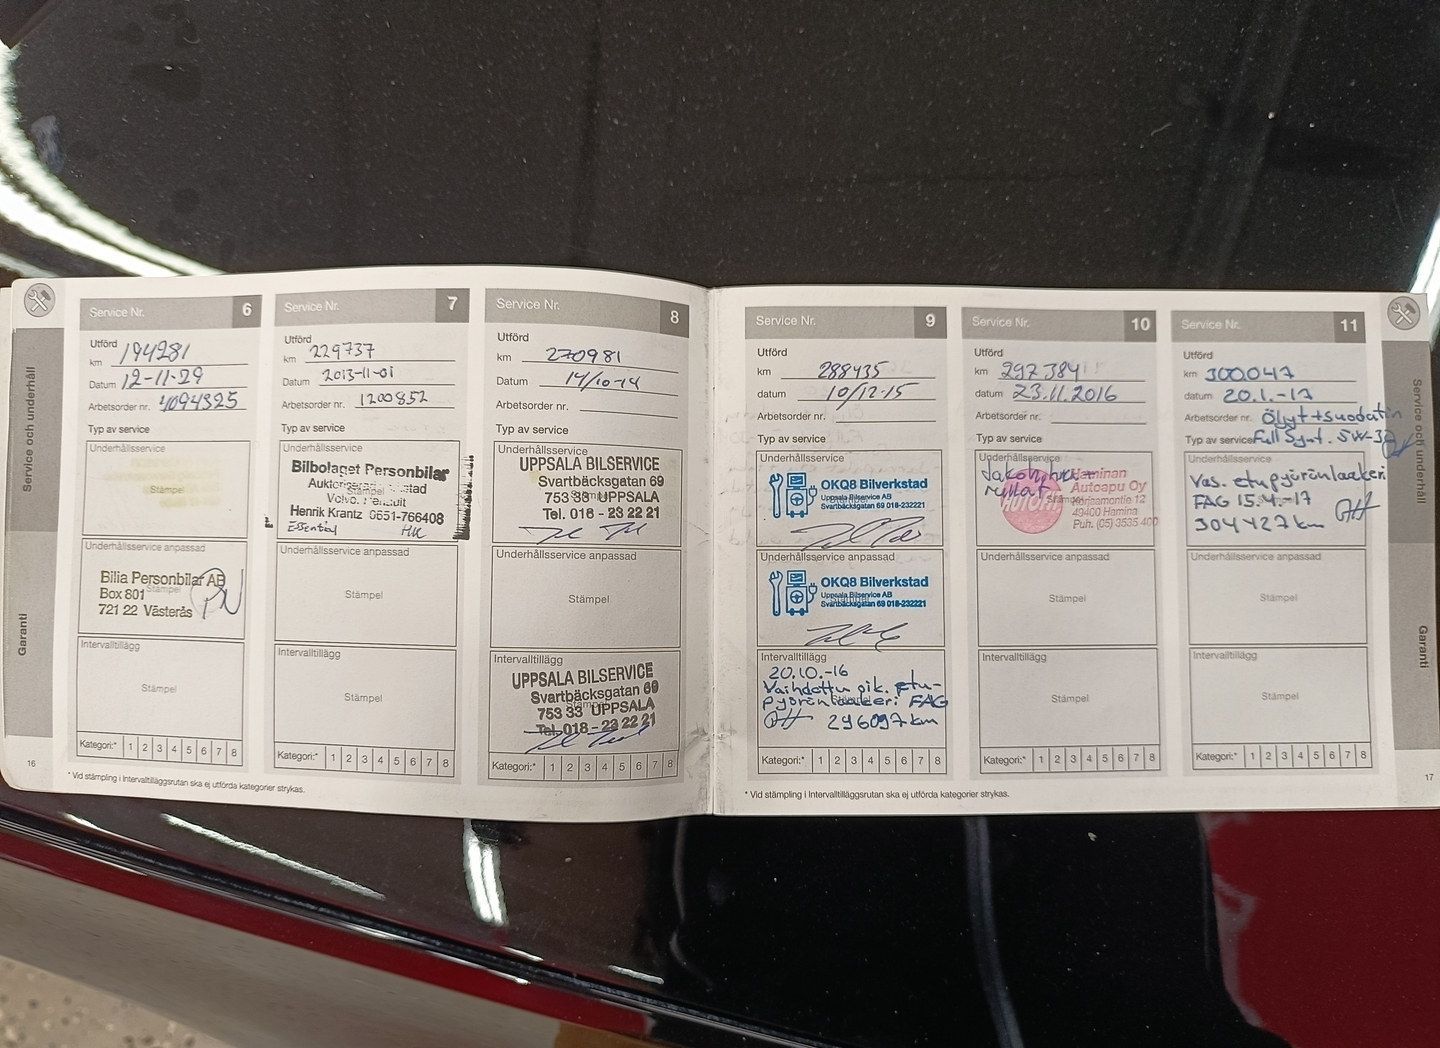 Service och underhåll
Garanti
16
Service Nr. 6
Utförd
km 194281
Datum 12-11-29
Arbetsorder nr. 4094325
Typ av service
Underhållsservice
Stämpel
Underhållsservice anpassad
Stämpel
Bilia Personbilar AB
Box 801
721 22 Västerås
Intervalltillägg
Stämpel
Kategori:* 1 2 3 4 5 6 7 8
* Vid stämpling i Intervalltilläggsrutan ska ej utförda kategorier strykas.
Service Nr. 7
Utförd
km 229737
Datum 2013-11-01
Arbetsorder nr. 1200852
Typ av service
Underhållsservice
Stämpel
Bilbolaget Personbilar
Volvo.
Henrik Krantz 0651-766408
Essential HK
Underhållsservice anpassad
Stämpel
Intervalltillägg
Stämpel
Kategori:* 1 2 3 4 5 6 7 8
Service Nr. 8
Utförd
km 270981
Datum 14/10-14
Arbetsorder nr.
Typ av service
UPPSALA BILSERVICE
Svartbäcksgatan 69
753 33 UPPSALA
Tel. 018 - 23 22 21
Underhållsservice anpassad
Stämpel
Intervalltillägg
UPPSALA BILSERVICE
Svartbäcksgatan 69
753 33 UPPSALA
Tel. 018 - 23 22 21
Kategori:* 1 2 3 4 5 6 7 8
Service Nr. 9
Utförd
km 288435
datum 10/12-15
Arbetsorder nr.
Typ av service
Underhållsservice
OKQ8 Bilverkstad
Uppsala Bilservice AB
Svartbäcksgatan 69 018-232221
Underhållsservice anpassad
OKQ8 Bilverkstad
Uppsala Bilservice AB
Svartbäcksgatan 69 018-232221
Intervalltillägg
20.10.-16
Vaihdettu oik. etu-
pyöränlaakeri FAG
296097 km
Kategori:* 1 2 3 4 5 6 7 8
* Vid stämpling i Intervalltilläggsrutan ska ej utförda kategorier strykas.
Service Nr. 10
Utförd
km 297384
datum 23.11.2016
Arbetsorder nr.
Typ av service
Underhållsservice
Jakohihna-
Haminan
Autoapu Oy
49400 Hamina
Puh. (05) 3535 400
Underhållsservice anpassad
Stämpel
Intervalltillägg
Stämpel
Kategori:* 1 2 3 4 5 6 7 8
Service Nr. 11
Utförd
km 300047
datum 20.1.-17
Arbetsorder nr. Öljyt+suodatin
Typ av service Full Synt. 5W-30
Underhållsservice
Vas. etupyöränlaakeri
FAG 15.4.-17
304427 km
Underhållsservice anpassad
Stämpel
Intervalltillägg
Stämpel
Kategori:* 1 2 3 4 5 6 7 8
Service och underhåll
Garanti
17